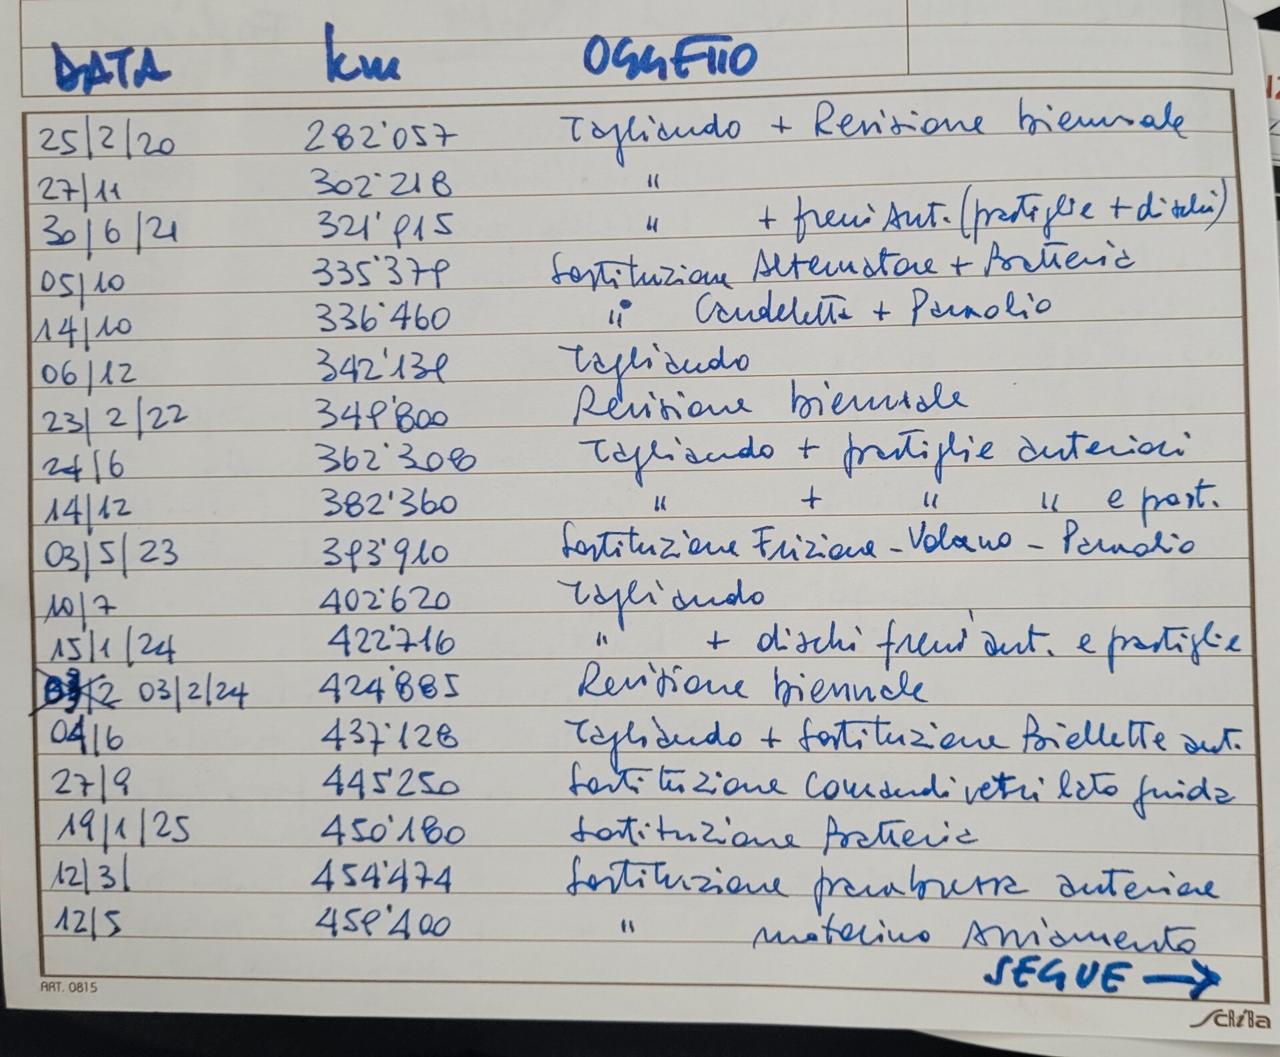 DATA km OGGETTO
25/2/20 282'057 Tagliando + Revisione biennale
27/11 302'218 "
30/6/21 321'915 " + freni Ant. (pastiglie + dischi)
05/10 335'379 Sostituzione Alternatore + Batteria
14/10 336'460 " Candelette + Paraolio
06/12 342'139 Tagliando
23/2/22 349'800 Revisione biennale
24/6 362'308 Tagliando + pastiglie anteriori
14/12 382'360 " + " " e post.
03/5/23 393'910 Sostituzione Frizione - Volano - Paraolio
10/7 402'620 Tagliando
15/1/24 422'716 " + dischi freni ant. e pastiglie
03/2/24 424'885 Revisione biennale
04/6 437'128 Tagliando + Sostituzione Biellette ant.
27/9 445'250 Sostituzione Comandi vetri lato guida
19/1/25 450'180 Sostituzione Batteria
12/3/ 454'474 Sostituzione parabrezza anteriore
12/5 459'400 " motorino Avviamento
SEGUE →
ART. 0815
ScRiBa